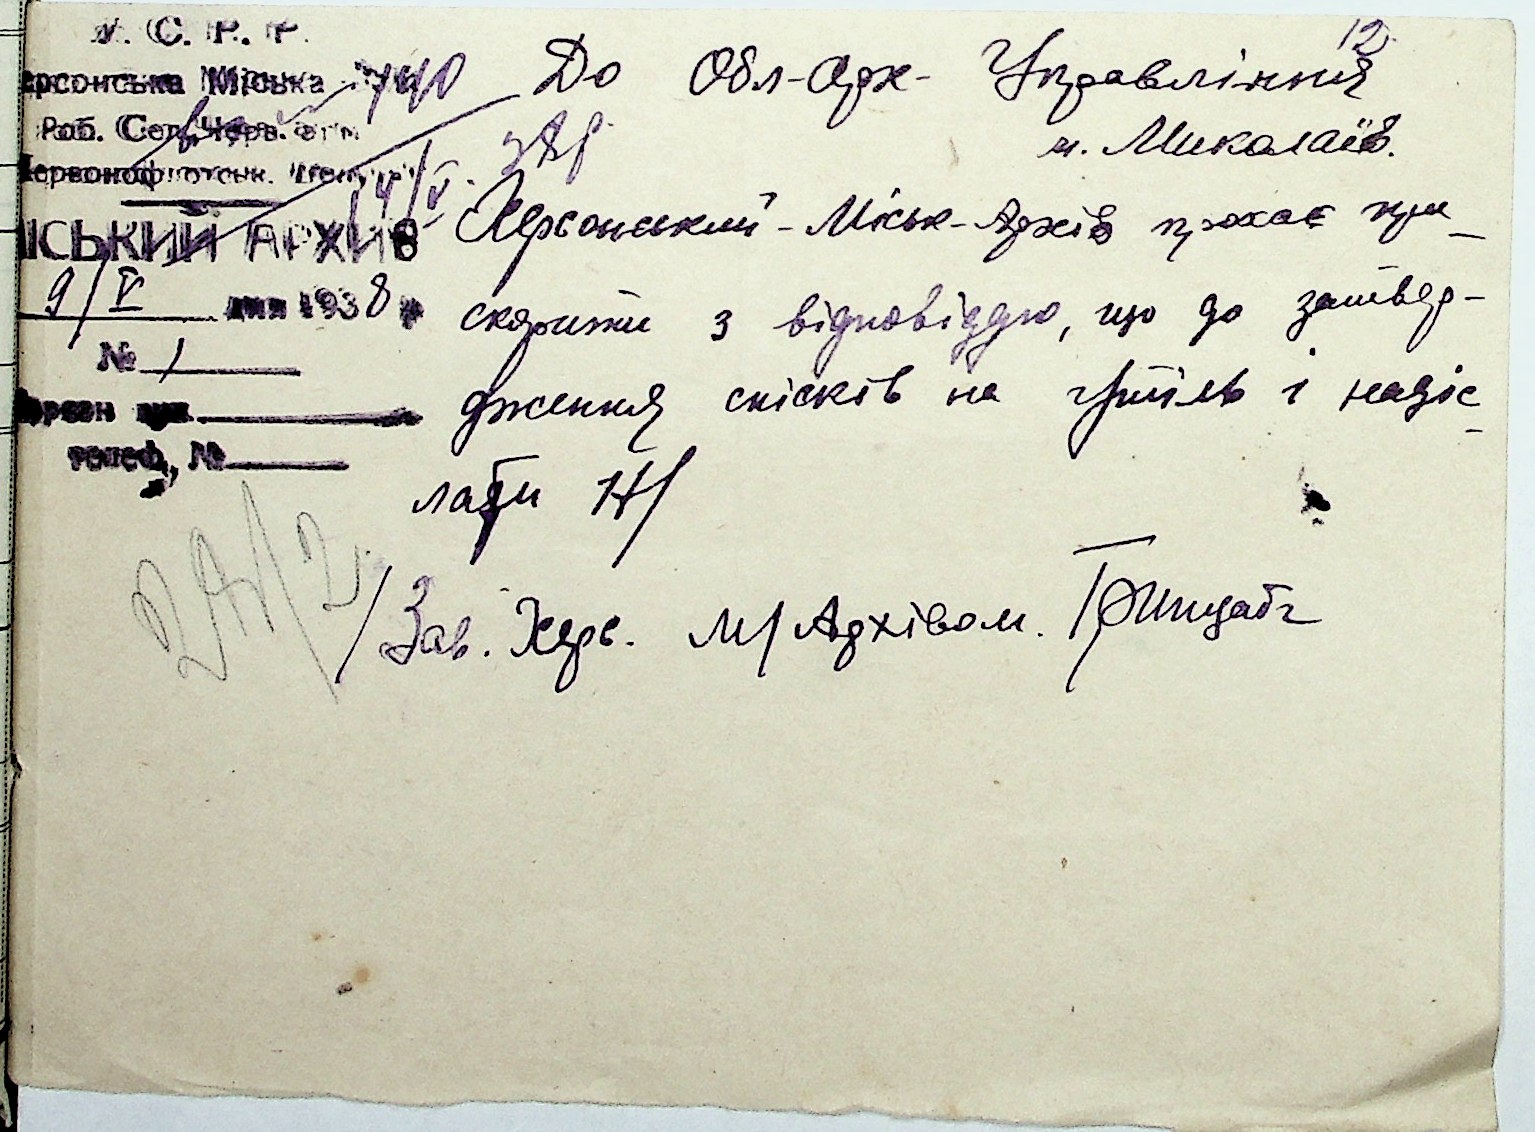 12
У. С. Р. Р.
ерсонська Міська
Роб. Сел. Черв.
ІСЬКИЙ АРХИВ
9/V дня 1938 р
№ 1
телеф, №
440
14/V.
До Обл-Арх-Управління
м. Миколаїв.
Херсонський-Міськ-Архів прохає при-
скорити з відповіддю, що до затвер-
дження списків на утіль і надіс-
лати
/Зав. Херс. М/Архівом.